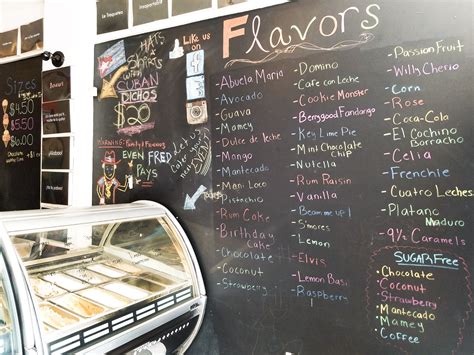 Sizes
$4.50
$5.50
$6.50
HATS
SHIRTS
WITH
CUBAN
DICHOS
$20
LIKE us
on
WARNING:
EVEN FRED
PAYS
Let us
Cater
Flavors
Abuela Maria
Avocado
Guava
Mamey
Dulce de leche
Mango
Mantecado
Mani Loco
Pistachio
Rum Cake
Birthday
Cake
Chocolate
Coconut
Strawberry
Domino
Cafe con Leche
Cookie Monster
Berrygood Fandango
Key Lime Pie
Mini Chocolate
Chip
Nutella
Rum Raisin
Vanilla
Beam me up!
S'mores
Lemon
Elvis
Lemon Basil
Raspberry
Passion Fruit
Willy Cherio
Corn
Rose
Coca-Cola
El Cochino
Borracho
Celia
Frenchie
Cuatro Leches
Platano
Maduro
9½ Caramels
SUGAR Free
Chocolate
Coconut
Strawberry
Mantecado
Mamey
Coffee